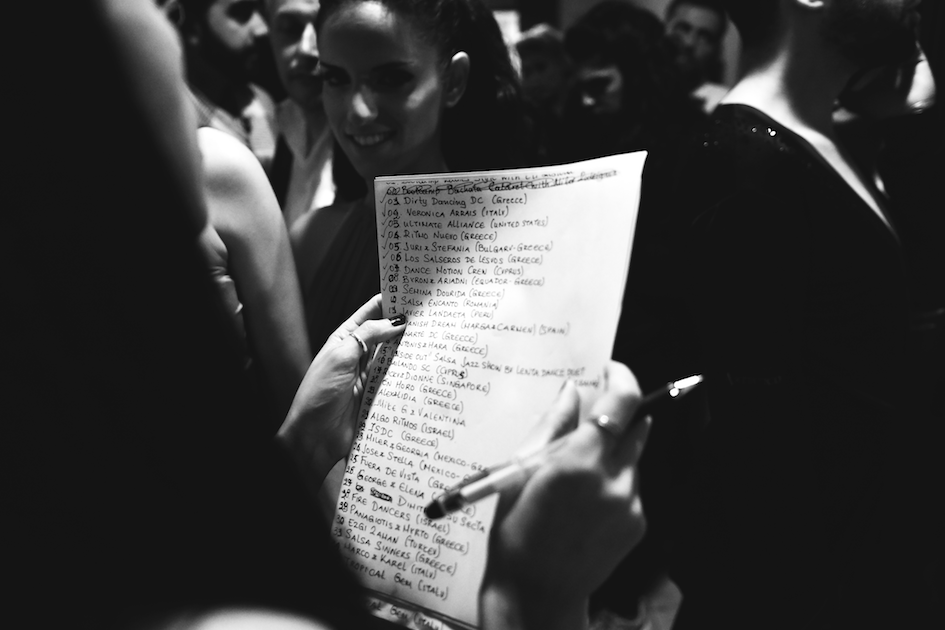 Bootcamp Bachata Cabaret with
01 DIRTY DANCING DC (GREECE)
02 VERONICA ARRAIS (ITALY)
03 ULTIMATE ALLIANCE (UNITED STATES)
04 RITMO NUEVO (GREECE)
05 JURI & STEFANIA (BULGARY-GREECE)
06 LOS SALSEROS DE LESVOS (GREECE)
07 DANCE MOTION CREW (CYPRUS)
08 BYRON & ARIADNI (EQUADOR-GREECE)
09 SEMINA DOURIDA (GREECE)
10 SALSA ENCANTO (ROMANIA)
JAVIER LANDAETA (PERU)
ANISH DREAM (MARGA & CARMEN) (SPAIN)
NARTE DC (GREECE)
NTONIS & MARA (GREECE)
SIDE OUT' SALSA JAZZ SHOW BY LENTA DANCE DUET
AILANDO SC (CYPRUS)
& DIONNE (SINGAPORE)
EN HORO (GREECE)
ALEXALIDIA (GREECE)
MIKE G & VALENTINA
ALGO RITMOS (ISRAEL)
JSDC (GREECE)
MILER & GEORGIA (MEXICO-GR
JOSE & STELLA (MEXICO-G
25 FUERA DE VISTA (GRE
26 GEORGE & ELENA (
DIMIT SU SECTA
FIRE DANCERS (ISRAEL)
28 PANAGIOTIS & MYRTO (GREECE)
EZGI ZAMAN (TURKEY)
SALSA SINNERS (GREECE)
MARCO & KAREL (ITALY)
NOFFICAL GEM (ITALY)
CAL GEM (ITALY)